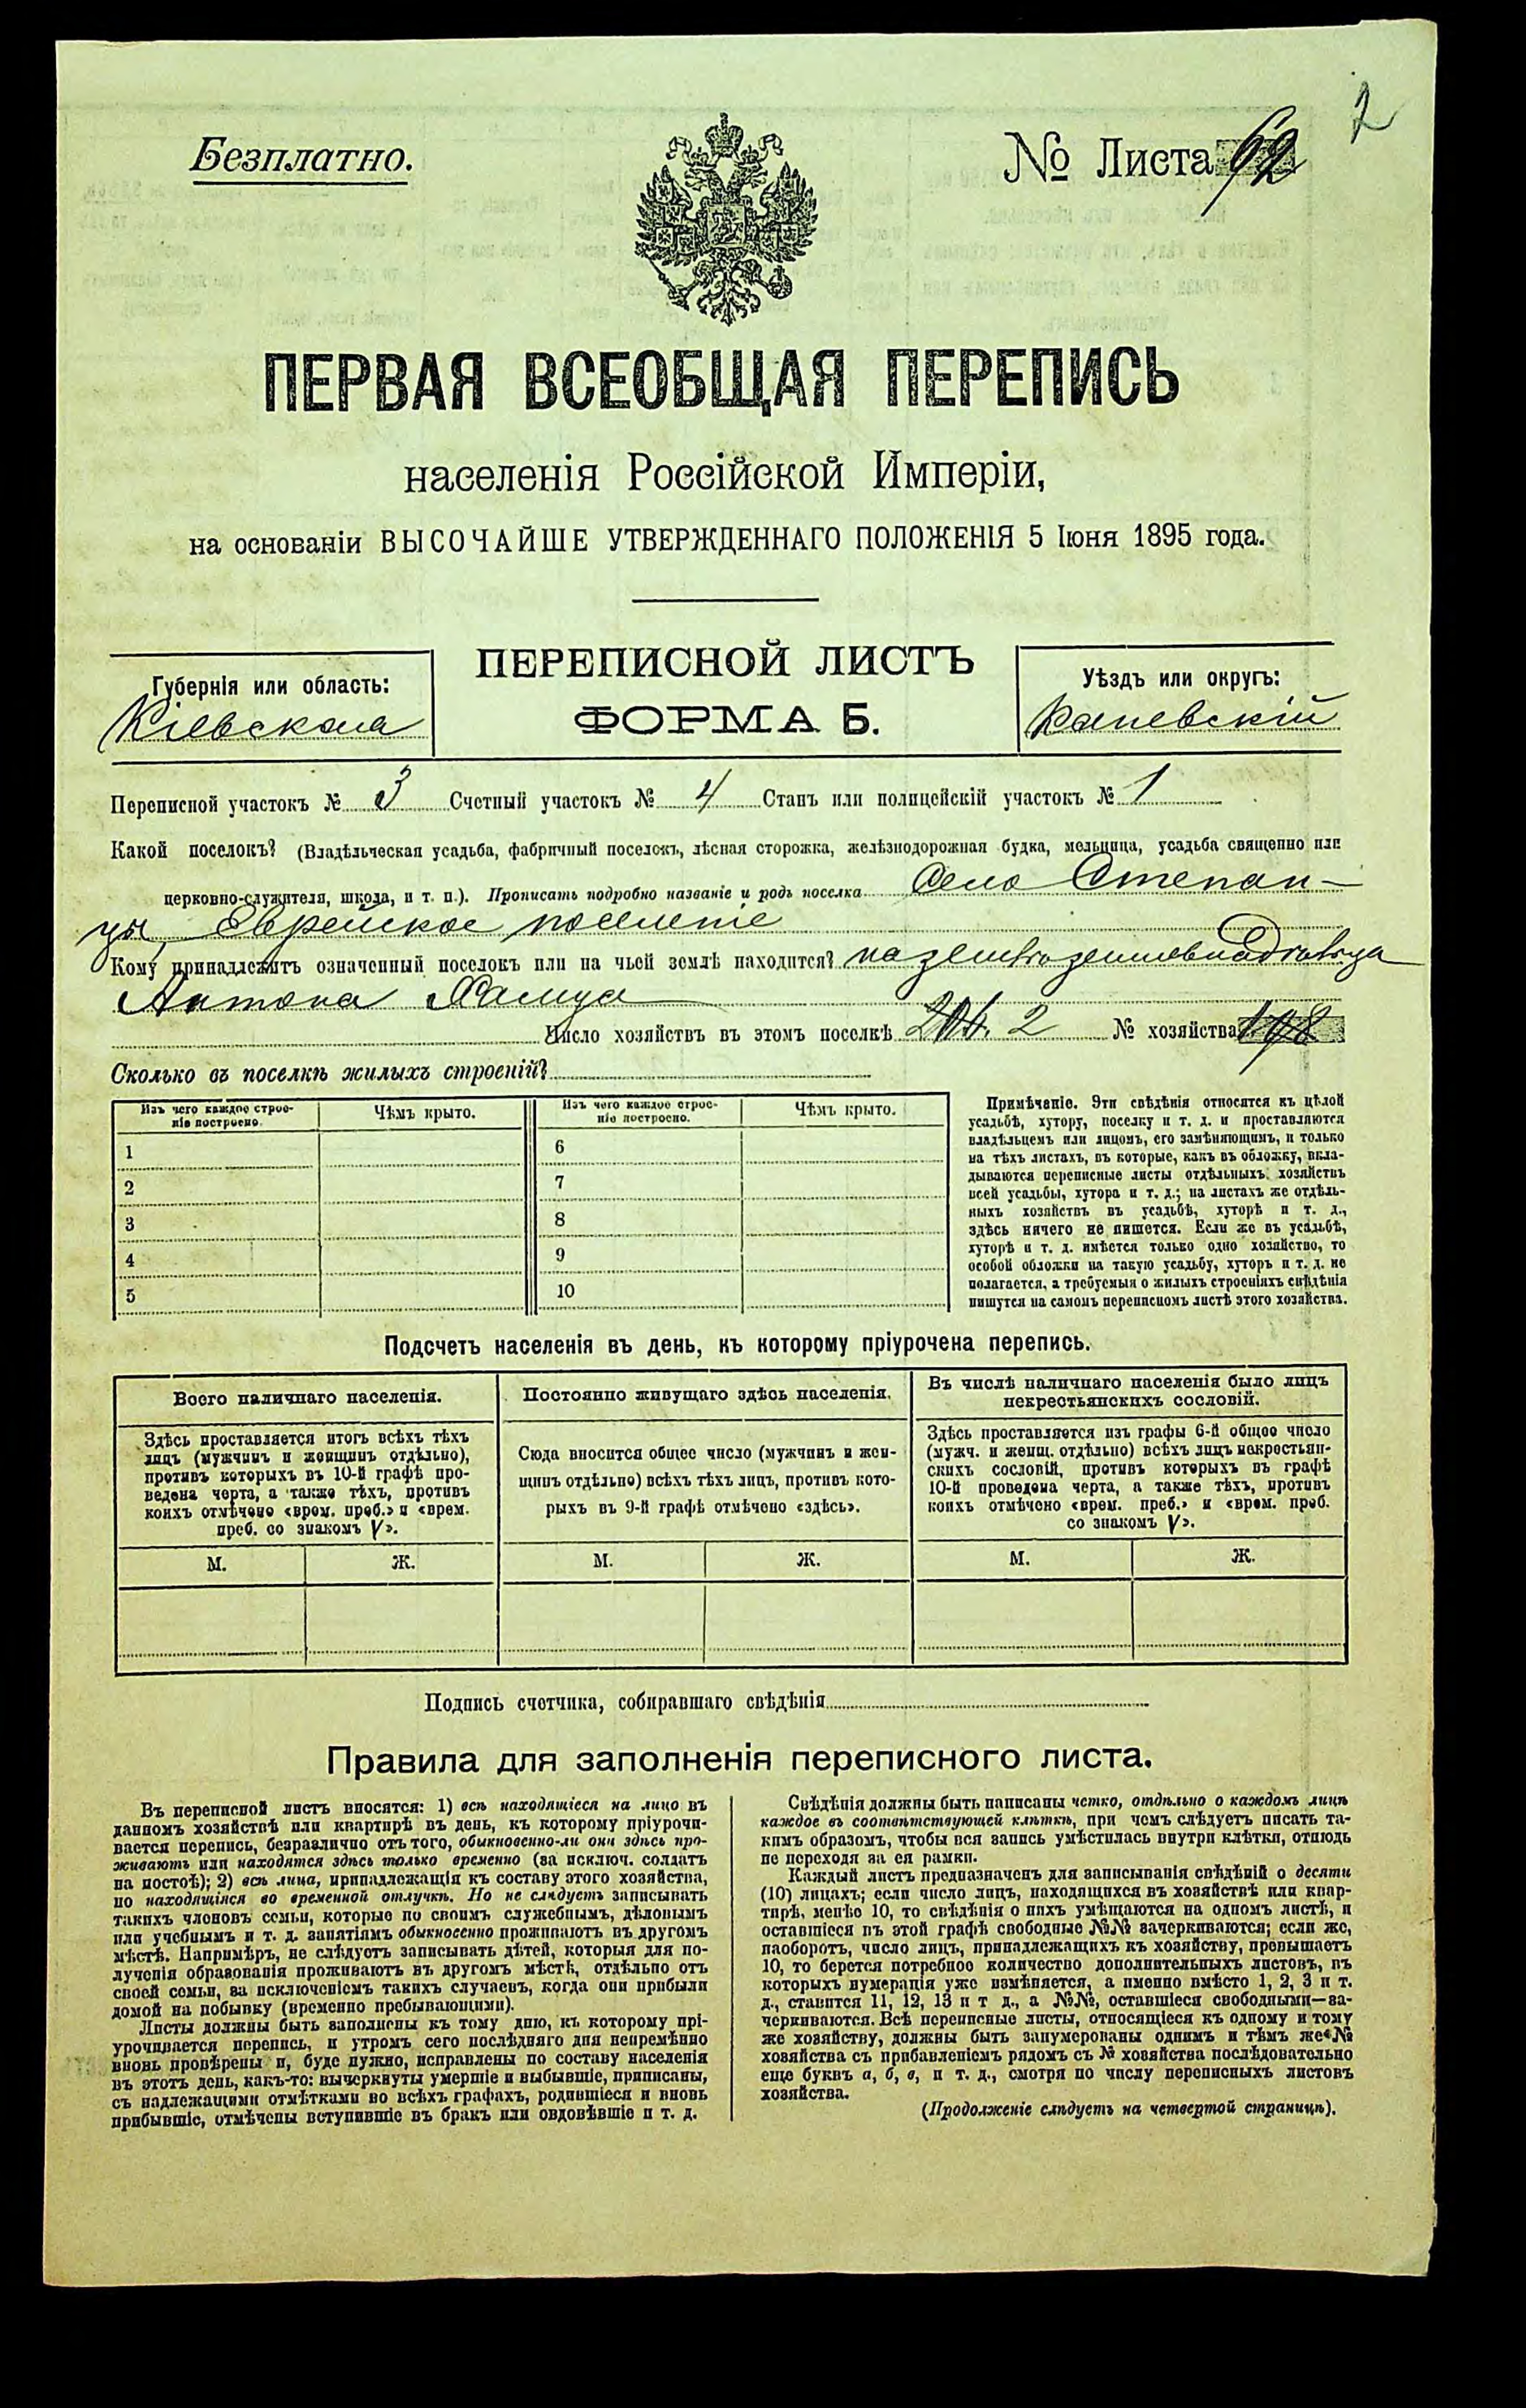 2
Безплатно.
№ Листа 62
ПЕРВАЯ ВСЕОБЩАЯ ПЕРЕПИСЬ
населенія Россійской Имперіи,
на основаніи ВЫСОЧАЙШЕ УТВЕРЖДЕННАГО ПОЛОЖЕНІЯ 5 Іюня 1895 года.
ПЕРЕПИСНОЙ ЛИСТЪ
ФОРМА Б.
Губернія или область:
Кіевская
Уѣздъ или округъ:
Каневскій
Переписной участокъ № 3 Счетный участокъ № 4 Станъ или полицейскій участокъ № 1
Какой поселокъ? (Владѣльческая усадьба, фабричный поселокъ, лѣсная сторожка, желѣзнодорожная будка, мельница, усадьба священно или
церковно-служителя, школа, и т. п.). Прописать подробно названіе и родъ поселка Село Степан-
цы, Еврейское поселеніе
Кому принадлежитъ означенный поселокъ или на чьей землѣ находится? на землѣ землевладѣльца
Антона
Число хозяйствъ въ этомъ поселкѣ 2 № хозяйства 198
Сколько въ поселкѣ жилыхъ строеній?
Изъ чего каждое строе-
ніе построено.
Чѣмъ крыто.
Изъ чего каждое строе-
ніе построено.
Чѣмъ крыто.
1 6
2 7
3 8
4 9
5 10
Примѣчаніе. Эти свѣдѣнія относятся къ цѣлой
усадьбѣ, хутору, поселку и т. д. и проставляются
владѣльцемъ или лицомъ, его замѣняющимъ, и только
на тѣхъ листахъ, въ которые, какъ въ обложку, вкла-
дываются переписные листы отдѣльныхъ хозяйствъ
всей усадьбы, хутора и т. д.; на листахъ же отдѣль-
ныхъ хозяйствъ въ усадьбѣ, хуторѣ и т. д.,
здѣсь ничего не пишется. Если же въ усадьбѣ,
хуторѣ и т. д. имѣется только одно хозяйство, то
особой обложки на такую усадьбу, хуторъ и т. д. не
полагается, а требуемыя о жилыхъ строеніяхъ свѣдѣнія
пишутся на самомъ переписномъ листѣ этого хозяйства.
Подсчетъ населенія въ день, къ которому пріурочена перепись.
Всего наличнаго населенія.
Здѣсь проставляется итогъ всѣхъ тѣхъ
лицъ (мужчинъ и женщинъ отдѣльно),
противъ которыхъ въ 10-й графѣ про-
ведена черта, а также тѣхъ, противъ
коихъ отмѣчено «врем. преб.» и «врем.
преб. со знакомъ V».
М. Ж.
Постоянно живущаго здѣсь населенія.
Сюда вносится общее число (мужчинъ и жен-
щинъ отдѣльно) всѣхъ тѣхъ лицъ, противъ кото-
рыхъ въ 9-й графѣ отмѣчено «здѣсь».
М. Ж.
Въ числѣ наличнаго населенія было лицъ
некрестьянскихъ сословій.
Здѣсь проставляется изъ графы 6-й общее число
(мужч. и женщ. отдѣльно) всѣхъ лицъ некрестьян-
скихъ сословій, противъ которыхъ въ графѣ
10-й проведена черта, а также тѣхъ, противъ
коихъ отмѣчено «врем. преб.» и «врем. преб.
со знакомъ V».
М. Ж.
Подпись счетчика, собиравшаго свѣдѣнія
Правила для заполненія переписного листа.
Въ переписной листъ вносятся: 1) всѣ находящіеся на лицо въ
данномъ хозяйствѣ или квартирѣ въ день, къ которому пріурочи-
вается перепись, безразлично отъ того, обыкновенно-ли они здѣсь про-
живаютъ или находятся здѣсь только временно (за исключ. солдатъ
на постоѣ); 2) всѣ лица, принадлежащія къ составу этого хозяйства,
но находящіяся во временной отлучкѣ. Но не слѣдуетъ записывать
такихъ членовъ семьи, которые по своимъ служебнымъ, дѣловымъ
или учебнымъ и т. д. занятіямъ обыкновенно проживаютъ въ другомъ
мѣстѣ. Напримѣръ, не слѣдуетъ записывать дѣтей, которыя для по-
лученія образованія проживаютъ въ другомъ мѣстѣ, отдѣльно отъ
своей семьи, за исключеніемъ такихъ случаевъ, когда они прибыли
домой на побывку (временно пребывающими).
Листы должны быть заполнены къ тому дню, къ которому прі-
урочивается перепись, и утромъ сего послѣдняго дня непремѣнно
вновь провѣрены и, буде нужно, исправлены по составу населенія
въ этотъ день, какъ-то: вычеркнуты умершіе и выбывшіе, приписаны,
съ надлежащими отмѣтками во всѣхъ графахъ, родившіеся и вновь
прибывшіе, отмѣчены вступившіе въ бракъ или овдовѣвшіе и т. д.
Свѣдѣнія должны быть написаны четко, отдѣльно о каждомъ лицѣ
каждое въ соотвѣтствующей клѣткѣ, при чемъ слѣдуетъ писать та-
кимъ образомъ, чтобы вся запись умѣстилась внутри клѣтки, отнюдь
не переходя за ея рамки.
Каждый листъ предназначенъ для записыванія свѣдѣній о десяти
(10) лицахъ; если число лицъ, находящихся въ хозяйствѣ или квар-
тирѣ, менѣе 10, то свѣдѣнія о нихъ умѣщаются на одномъ листѣ, и
оставшіеся въ этой графѣ свободные №№ зачеркиваются; если же,
наоборотъ, число лицъ, принадлежащихъ къ хозяйству, превышаетъ
10, то берется потребное количество дополнительныхъ листовъ, въ
которыхъ нумерація уже измѣняется, а именно вмѣсто 1, 2, 3 и т.
д., ставится 11, 12, 13 и т д., а №№, оставшіеся свободными—за-
черкиваются. Всѣ переписные листы, относящіеся къ одному и тому
же хозяйству, должны быть занумерованы однимъ и тѣмъ же №
хозяйства съ прибавленіемъ рядомъ съ № хозяйства послѣдовательно
еще буквъ а, б, в, и т. д., смотря по числу переписныхъ листовъ
хозяйства.
(Продолженіе слѣдуетъ на четвертой страницѣ).